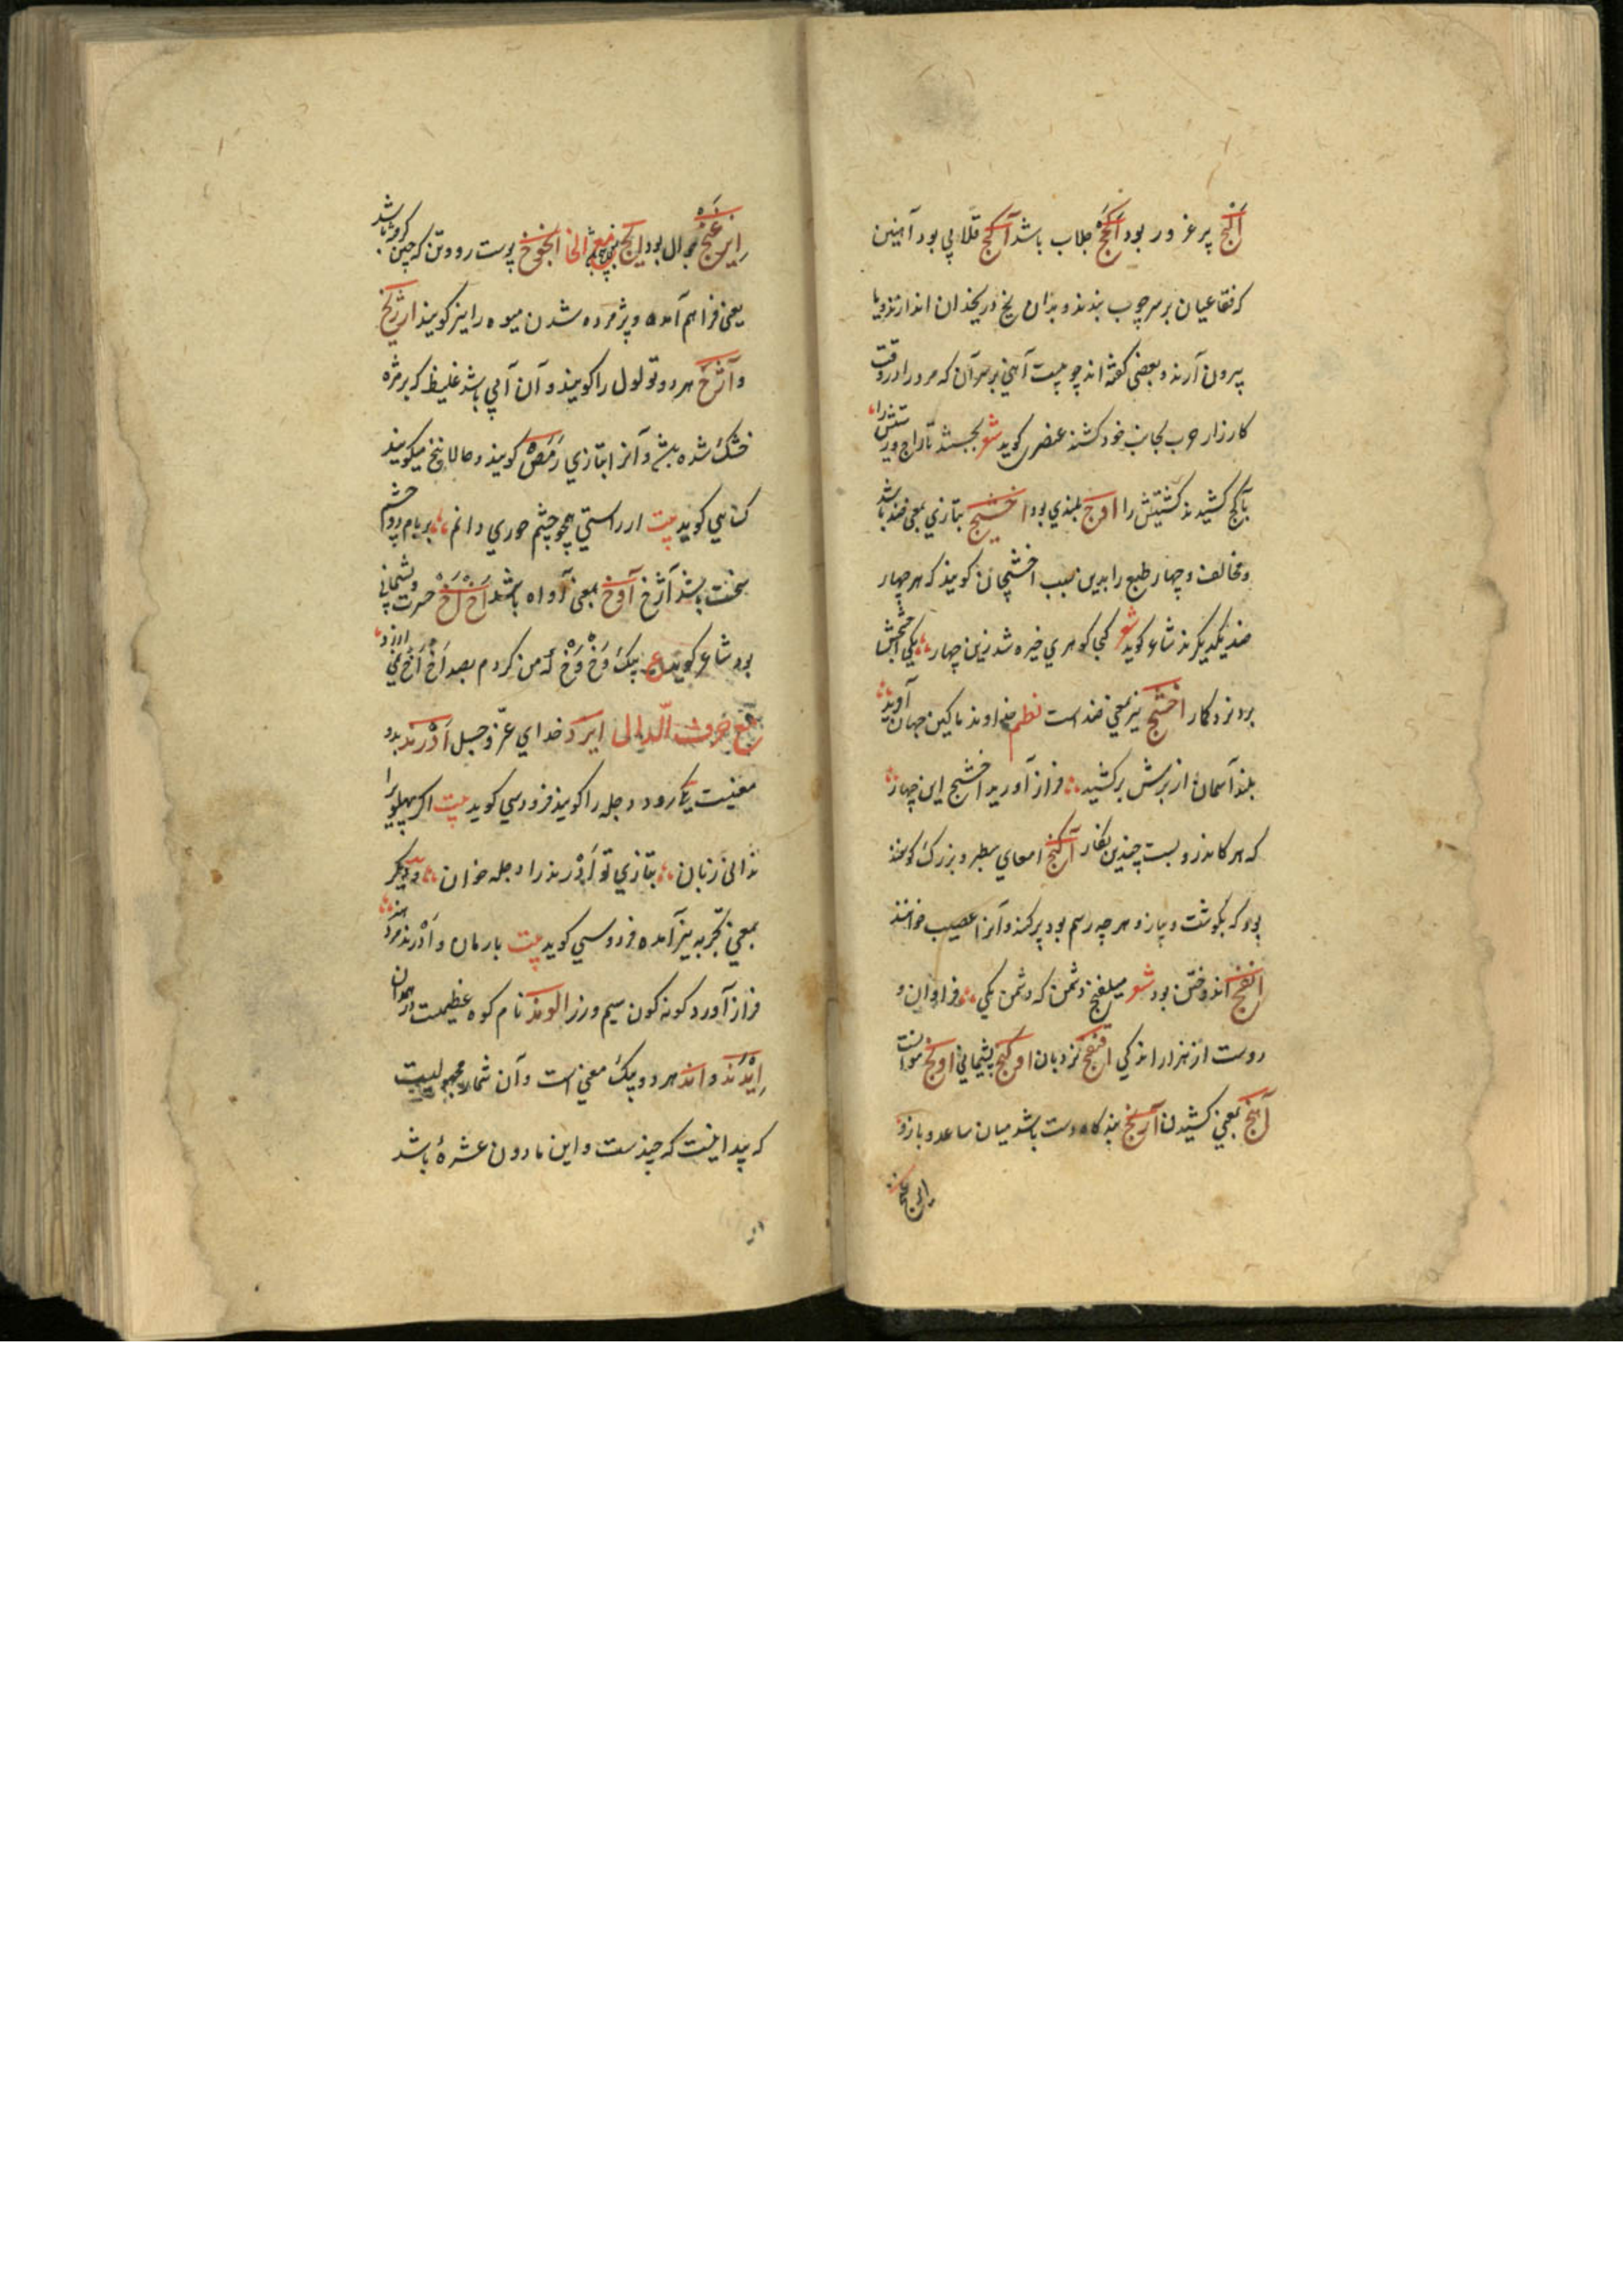 آگنج پر غرور بود اکج جلاب باشد آکج قلابی بود آهنین
که فقاعیان بر سر چوب بندند و بدان یخ در یخدان اندازند و یا
بیرون آرند و بعضی گفته‌اند چوبیست آهنی بر سر آن که مرد را در وقت
کارزار حرب بجانب خود کشند عنصری کوید شعر بجستند تاراج و زشتیش را
بآکج کشیدند کشتیش را اوج بلندی بود اخشیج بتازی بمعنی ضد باشد
و مخالف و چهار طبع را بدین سبب اخشیجان کویند که هر چهار
ضد یکدیکرند شاعر کوید شعر کجا کوهری خیره شد زین چهار یکی اخشیجش
برو بر دکار اخشیج نیز بمعنی ضد است نظم خداوند ما کین جهان آورید
بلند آسمان از برش برکشید فراز آورید اخشیج این چهار
که هر کاندرو بست چندین نکار آکنج امعای سطبر و بزرک کوسفند
بود که بکوشت و پیاز و هر چه رسم بود پر کنند و آنرا عصیب خوانند
الفنج اندوختن بود شعر میلفنج دشمن که دشمن یکی فراوان و
دوست از هزار اندکی نردبان پشیمانی
آهنج بمعنی کشیدن آرنج بندکاه دست باشد میان ساعد و بازو
جوال بود مع الخا انجوخ پوست رو و تن که چین کرفته باشد
یعنی فراهم آمده و پژمرده شدن میوه را نیز کویند اژرخ
و آژخ هر دو تولول را کویند و آن آبی باشد غلیظ که بر مژه
خشک شده و آنرا بتازی رمص کویند و حالا پیخ میکویند
کسائی کوید بیت ار راستی همچو چشم حوری دانم بریام دو چشم
سخت آژخ آوخ بمعنی آواه باشد اخ اخ حسرت و پشیمانی
بود شاعر کوید ع بیک وخ وخ که من کردم بصد اخ اخ نمی ارزد
مع حرف الدال ایزد خدای عز و جل اروند بدو
معنیست یکی رود دجله را کویند فردوسی کوید بیت اکر پهلوی را
ندانی زبان بتازی تو اروند را دجله خوان و دیکر
بمعنی تجربه نیز آمده فردوسی کوید بیت بارمان و اروند مرد
فراز آورد کونه کون سیم و زر الوند نام کوه عظیمست در همدان
ایدند و اند هر دو بیک معنی است و آن شمار مجهولیست
که پیدا نیست که چندست و این ما دون عشره باشد